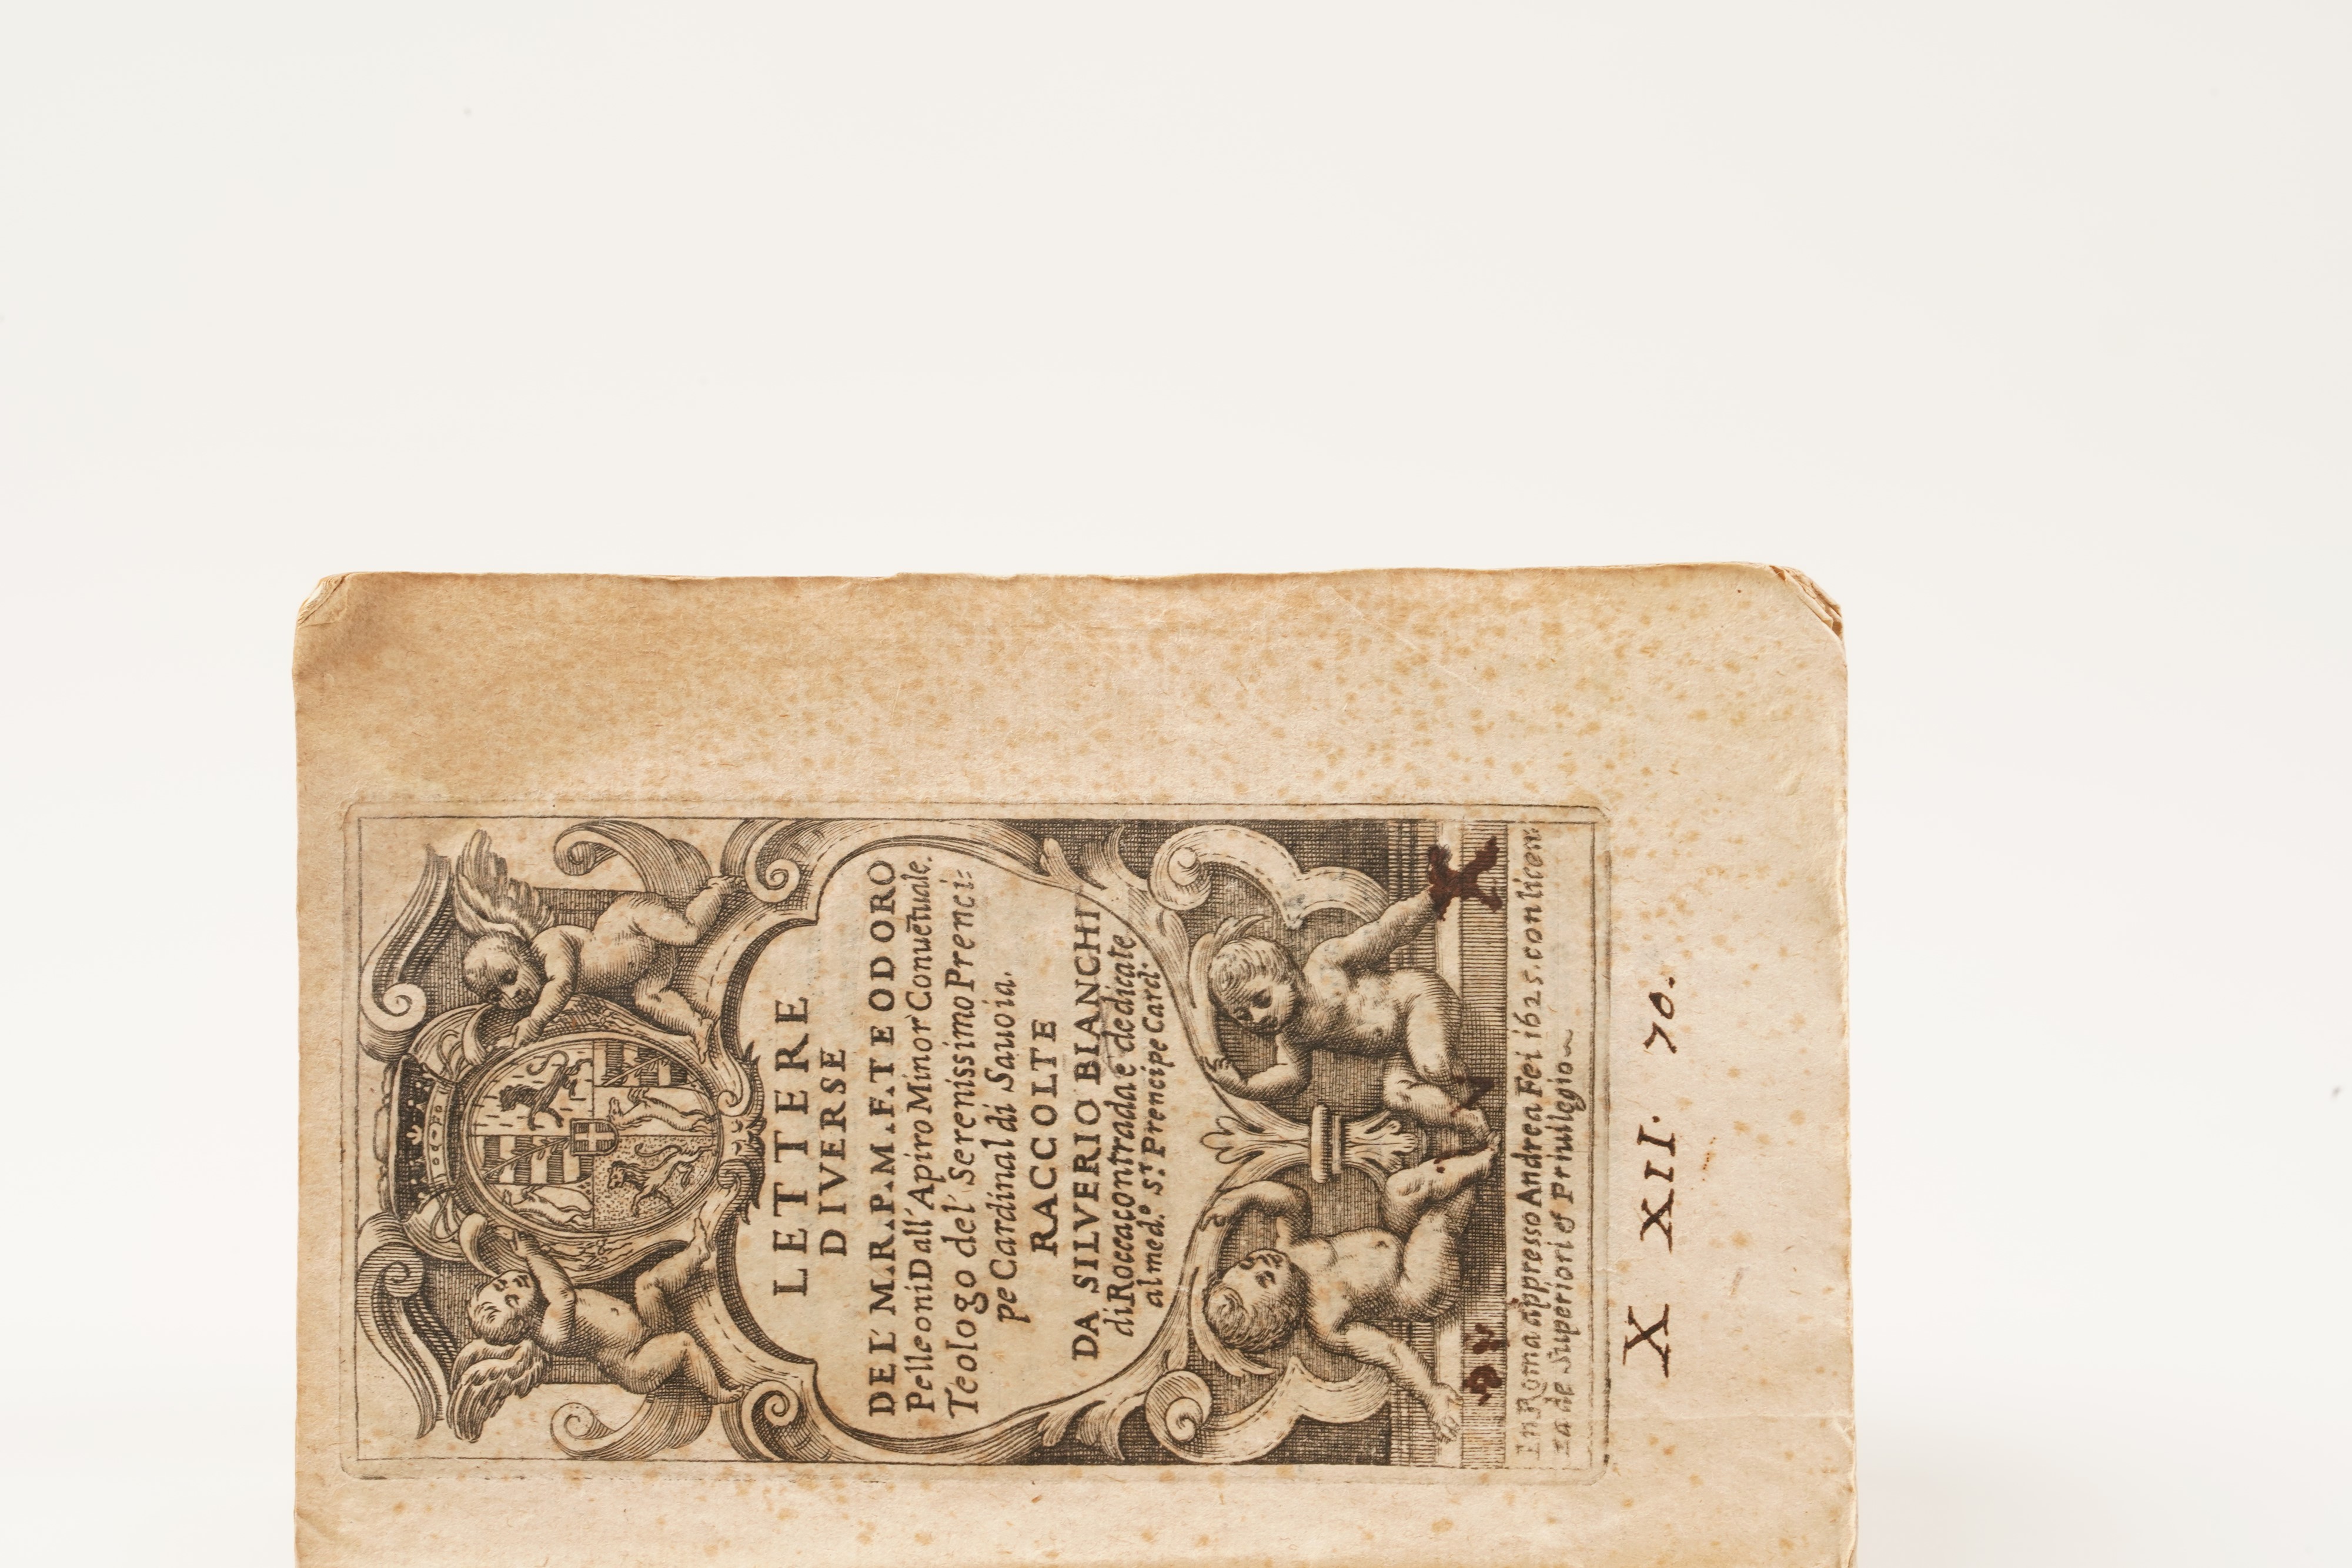 LETTERE
DIVERSE
DEL' M.R.P.M.F. TEODORO
Pelleoni Dall' Apiro Minor Conuẽtuale.
Teologo del' Serenissimo Prenci=
pe Cardinal di Sauoia.
RACCOLTE
DA SILVERIO BIANCHI
di Roccacontrada e dedicate
al med.º S.r Prencipe Card.
In Roma appresso Andrea Fei 1625. con licen
za de Superiori et Priuilegio
X XII. 70.